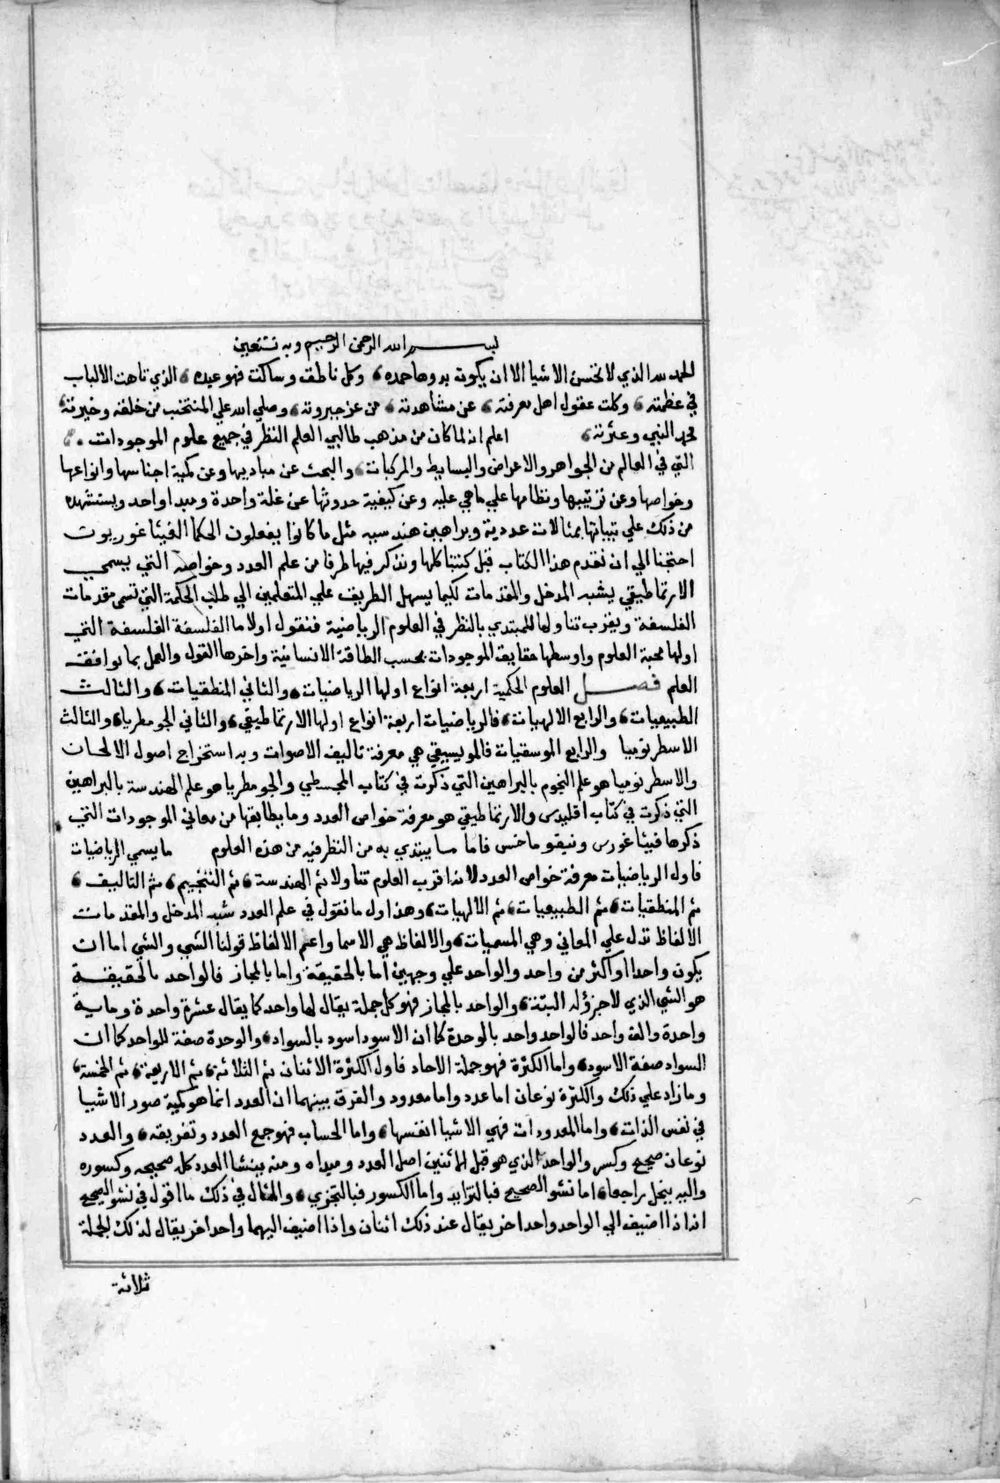 بسم الله الرحمن الرحيم وبه نستعين
الحمد لله الذي لا تحسن الاشيا الا ان يكون بدوها حمده وكل ناطق وساكت فهو عبده الذي تاهت الالباب
في عظمته وكلت عقول اهل معرفته عن مشاهدته من عز جبروته وصلي الله علي المنتخب من خلقه وخيرته
محمد النبي وعترته اعلم انه لما كان من مذهب طالبي العلم النظر في جميع علوم الموجودات
التي في العالم من الجواهر والاعراض والبسايط والمركبات والبحث عن مباديها وعن كمية اجناسها وانواعها
وخواصها وعن ترتيبها ونظامها علي ما هي عليه وعن كيفية حدوثها عن علة واحدة ومبدا واحد ويستشهده
من ذلك علي تبيانها بمثالات عددية وبراهين هندسيه مثل ما كانوا يفعلون الحكما الفيثاغوريون
احتجنا الي ان نقدم هذا الكتاب قبل كتبنا كلها ونذكر فيها طرفا من علم العدد وخواصه التي يسمي
الارتماطيقي يشبه المدخل والمقدمات لكيما يسهل الطريف علي المتعلمين الي طلب الحكمة التي تسمي مقدمات
الفلسفة ويقرب تناولها للمبتدي بالنظر في العلوم الرياضية فنقول اولا ما الفلسفة الفلسفة التي
اولها محبة العلوم واوسطها حقايق الموجودات بحسب الطاقة الانسانية واخرها القول والعمل بما يوافق
العلم فصل العلوم الحكمية اربعة انواع اولها الرياضيات والثاني المنطقيات والثالث
الطبيعيات والرابع الالهيات فالرياضيات اربعة انواع اولها الارتماطيقي والثاني الجومطريا والثالث
الاسطرنوميا والرابع الموسقيات فالمويسيقي هي معرفة تاليف الاصوات وبه استخراج اصول الالحان
والاسطرنوميا هو علم النجوم بالبراهين التي ذكرت في كتاب المجسطي والجومطريا هو علم الهندسة بالبراهين
التي ذكرت في كتاب اقليدس والارتماطيقي هو معرفة خواص العدد وما يطابقها من معاني الموجودات التي
ذكرها فيثاغورس ونيقوماخس فاما ما يبتدي به من النظر فيه من هذه العلوم ما يسمي الرياضيات
فاول الرياضيات معرفة خواص العدد لانه اقرب العلوم تناولا ثم الهندسة ثم التنجيم ثم التاليف
ثم المنطقيات ثم الطبيعيات ثم الالهيات وهذا اول ما نقول في علم العدد شبه المدخل والمقدمات
الالفاظ تدل علي المعاني وهي المسميات والالفاظ هي الاسما واعم الالفاظ قولنا الشي والشي اما ان
يكون واحدا او اكثر من واحد والواحد علي وجهين اما بالحقيقة واما بالمجاز فالواحد بالحقيقة
هو الشي الذي لا جزؤ له البتة والواحد بالمجاز فهو كل جملة يقال لها واحد كما يقال عشرة واحدة وماية
واحدة والف واحد فالواحد واحد بالوحدة كما ان الاسود اسود بالسواد والوحدة صفة للواحد كما ان
السواد صفة الاسود واما الكثرة فهو جملة الاحاد فاول الكثرة الاثنان ثم الثلاثة ثم الاربعة ثم الخمسة
وما زاد علي ذلك والكثرة نوعان اما عدد واما معدود والفرق بينهما ان العدد انما هو كمية صور الاشيا
في نفس الذات واما المعدودات فهي الاشيا انفسها واما الحساب فهو جمع العدد وتفريقه والعدد
نوعان صحيح وكسر والواحد الذي هو قبل الاثنين اصل العدد ومبداه ومنه ينشا العدد كله صحيحه وكسوره
واليه ينحل راجعا اما نشو الصحيح فبالتزايد واما الكسور فبالتجزي والمثال في ذلك ما اقول في نشو الصحيح
انه اذا اضيف الي الواحد واحد اخر يقال عند ذلك اثنان واذا اضيف اليهما واحد اخر يقال لذلك الجملة
ثلاثة